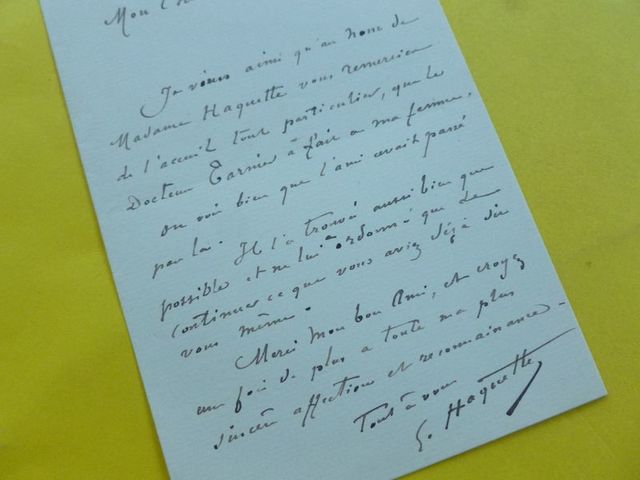 Mon
Je viens ainsi qu'au nom de
Madame Haquette vous remercier
de l'accueil tout particulier, que le
Docteur Tarnier à fait a ma femme.
on voit bien que l'ami avait passé
par la. Il l'a trouvé aussi bien que
possible et ne lui a ordonné que de
continuer ce que vous aviez déjà dit
vous même.
Merci mon bon Ami, et croyez
une fois de plus a toute ma plus
sincère affection et reconnaissance.
Tout à vous
G. Haquette